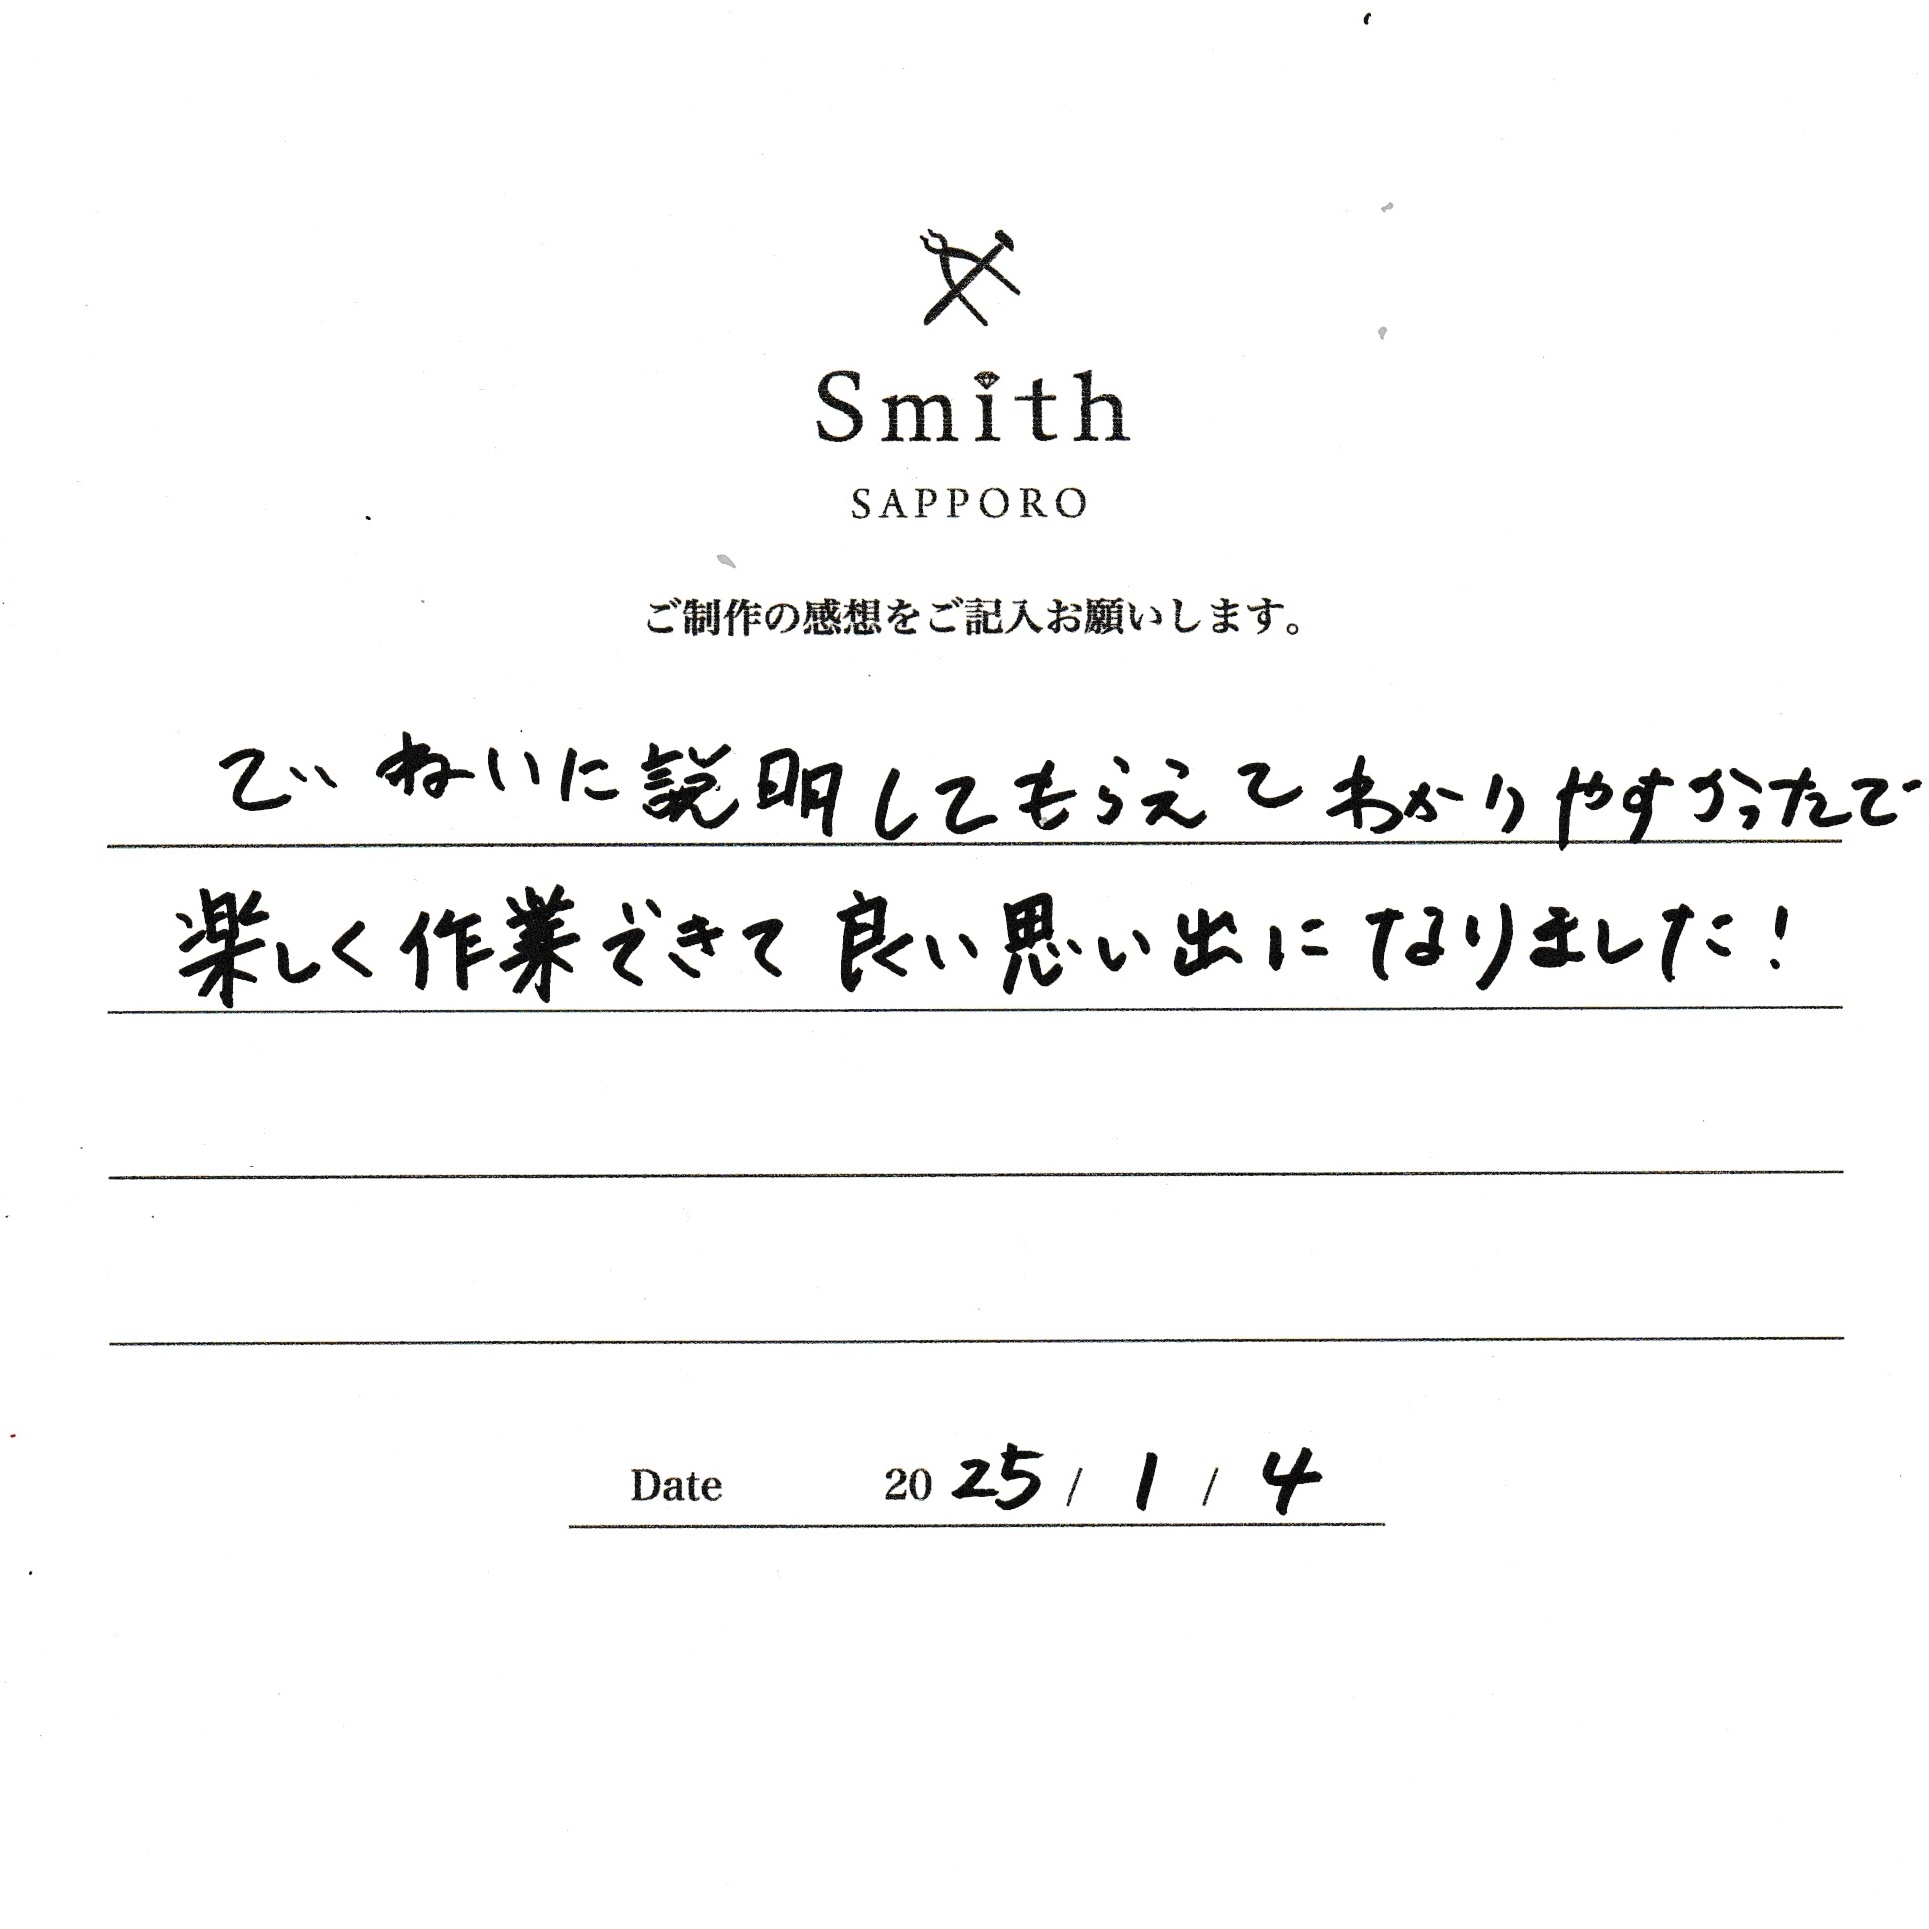 Smith
SAPPORO
ご制作の感想をご記入お願いします。
ていねいに説明してもらえてわかりやすかったで
楽しく作業できて良い思い出になりました!
Date 2025/1/4